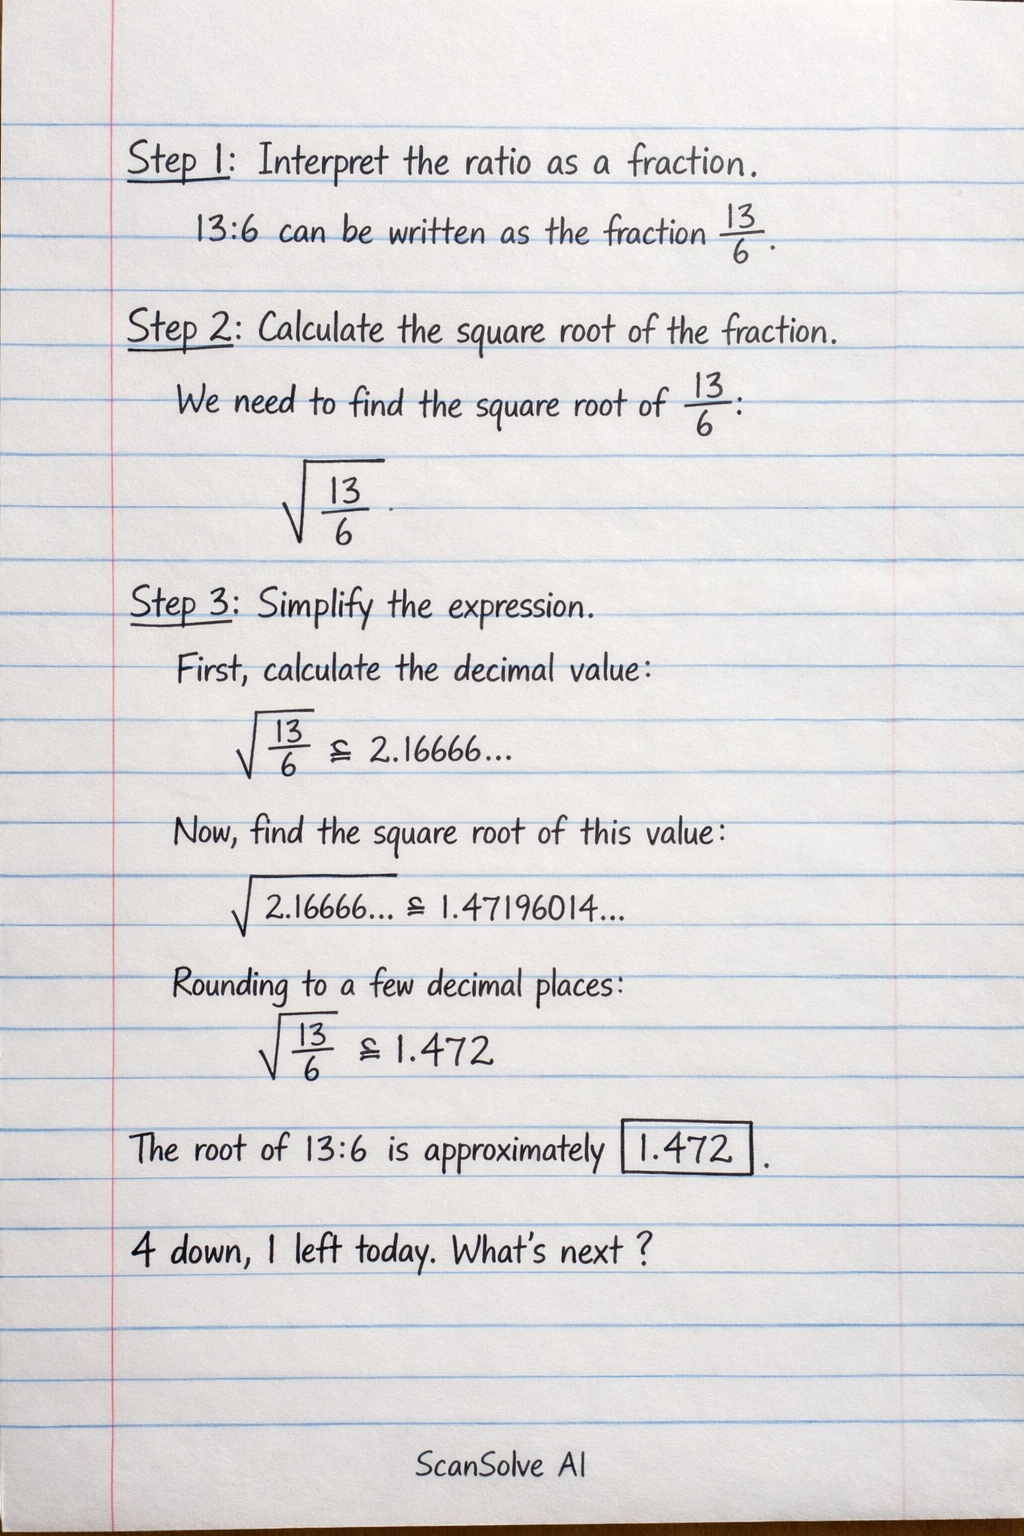 Step 1: Interpret the ratio as a fraction.
13:6 can be written as the fraction 13/6.
Step 2: Calculate the square root of the fraction.
We need to find the square root of 13/6:
√(13/6).
Step 3: Simplify the expression.
First, calculate the decimal value:
√(13/6) ≌ 2.16666...
Now, find the square root of this value:
√2.16666... ≌ 1.47196014...
Rounding to a few decimal places:
√(13/6) ≌ 1.472
The root of 13:6 is approximately 1.472.
4 down, 1 left today. What's next ?
ScanSolve AI